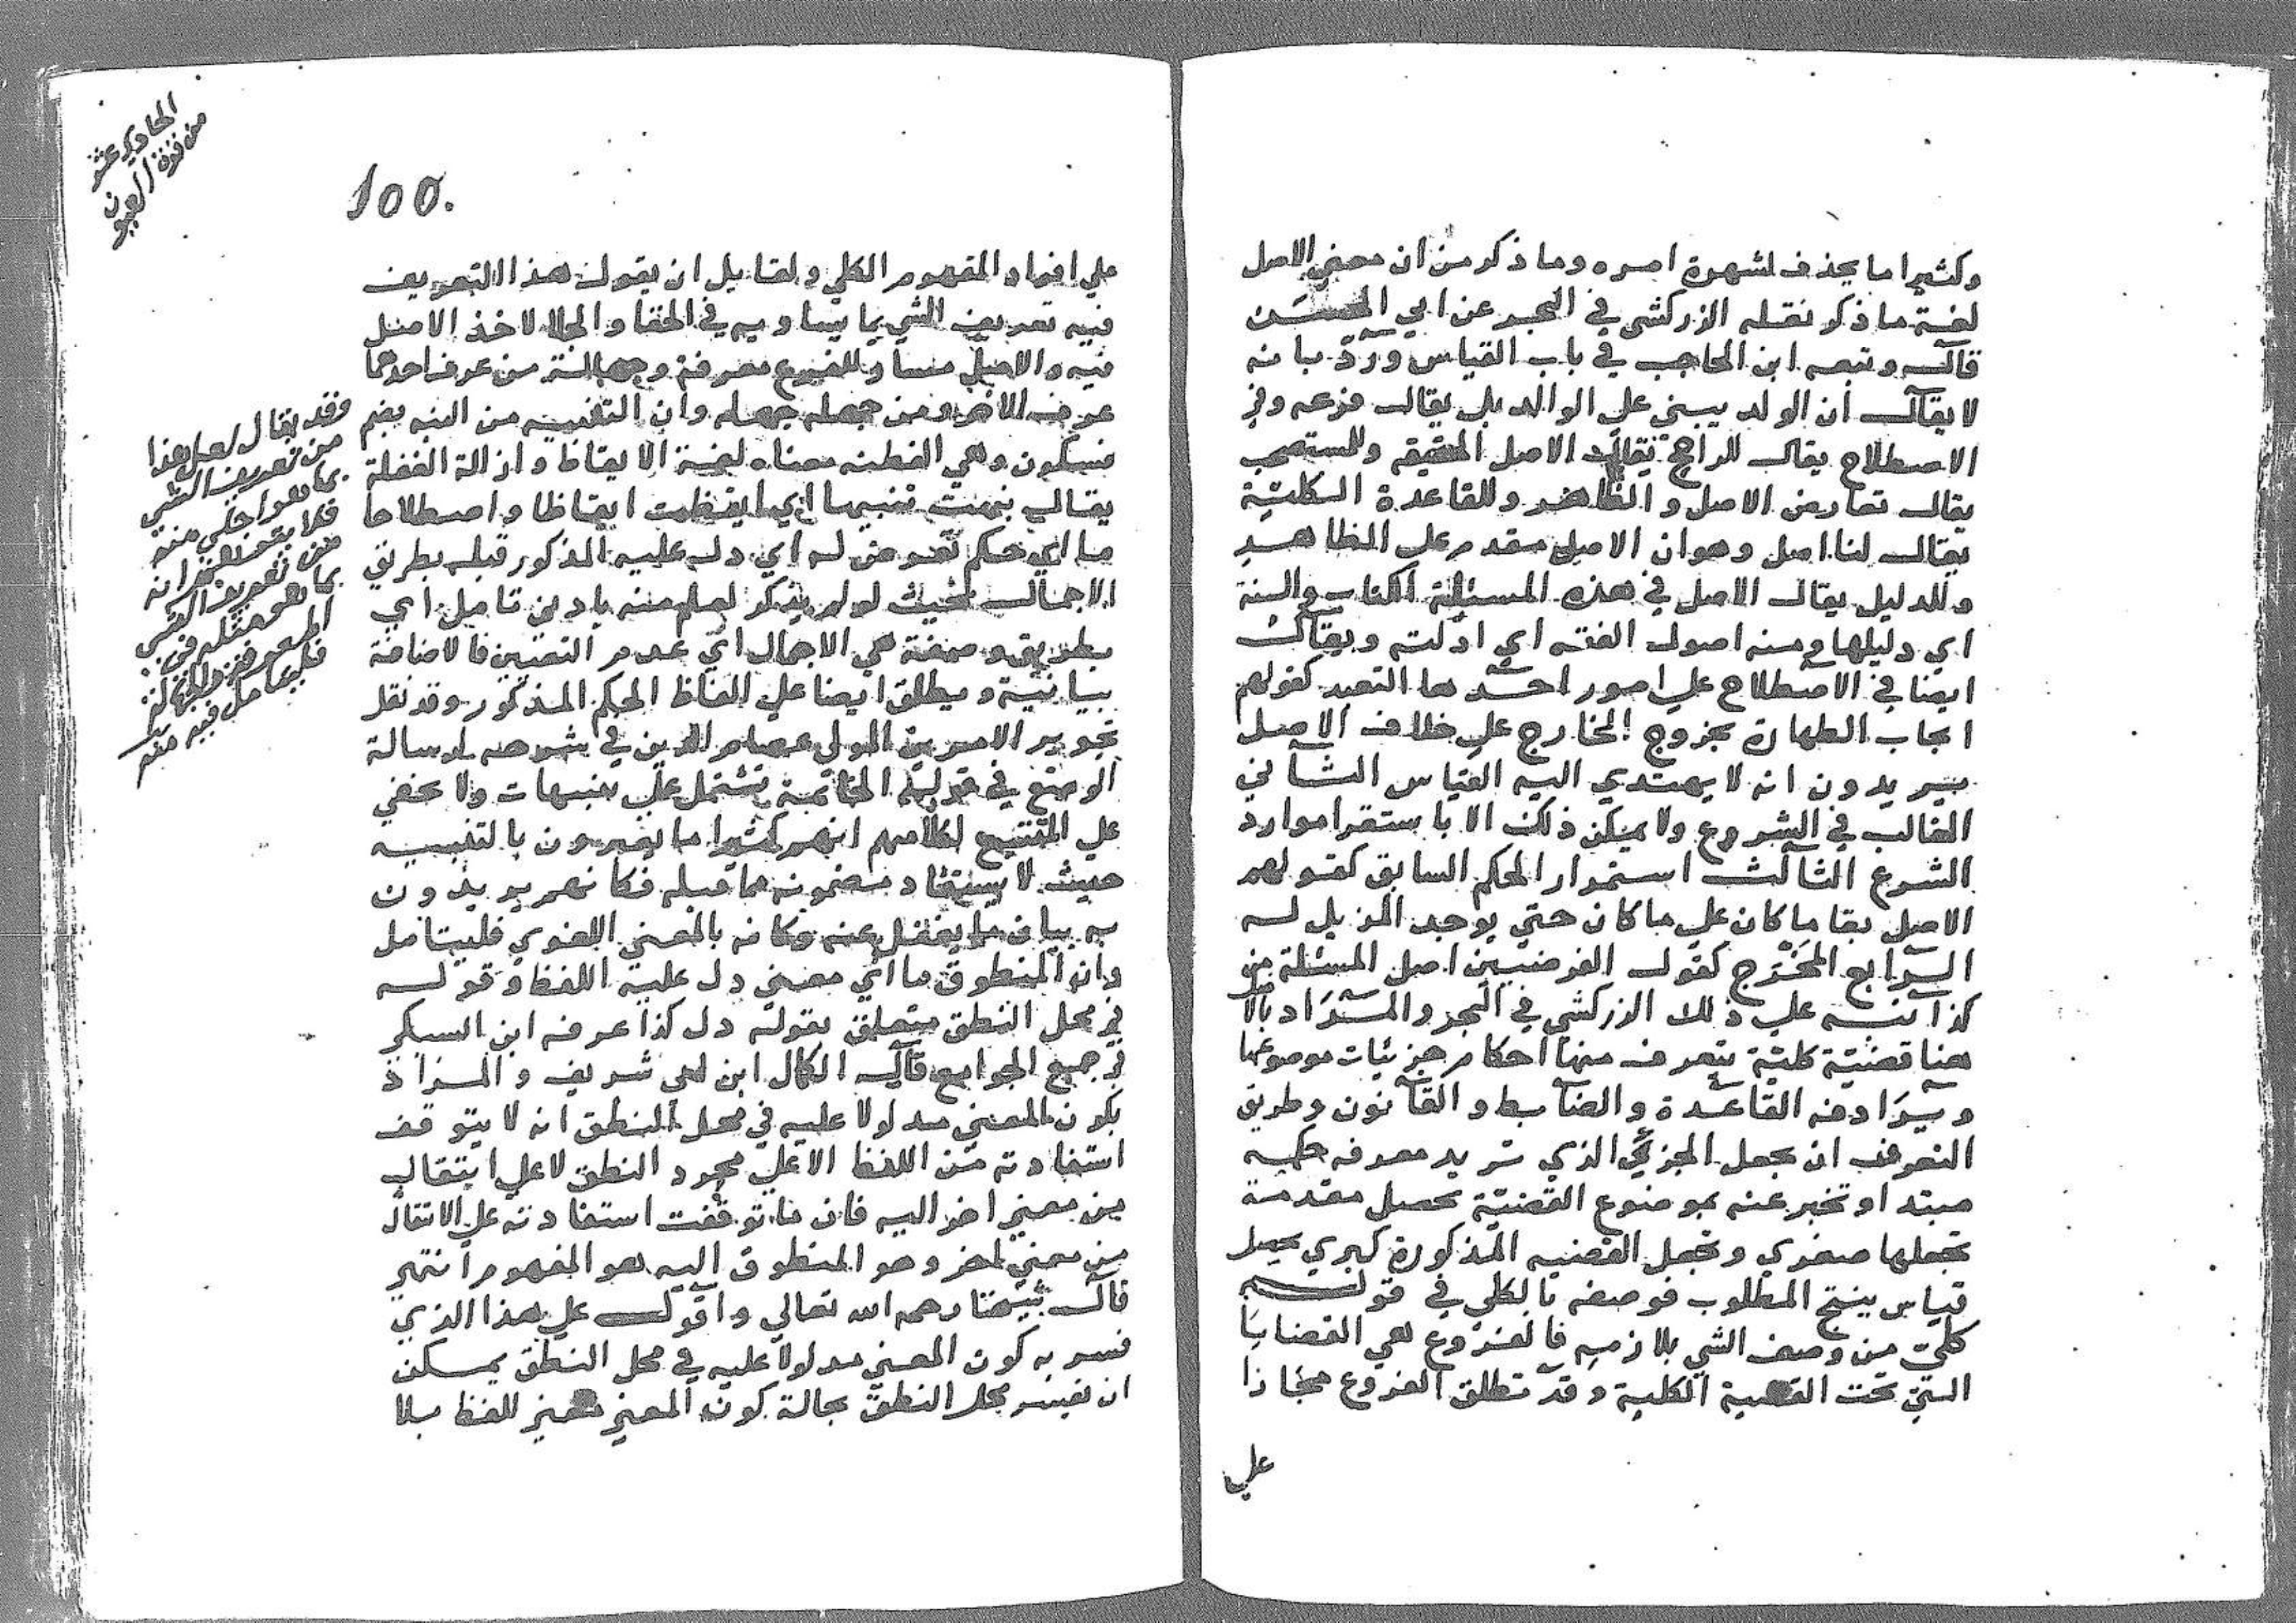 وكثيرا ما يحذف لشهرة امره وما ذكر من ان معني الاصل
لغة ما ذكر نقله الزركشي في البحر عن ابي الحسين
قال وتبعه ابن الحاجب في باب القياس وردّ بانه
لا يقال ان الولد يبني علي الوالد بل يقال فرعه وفي
الاصطلاح يقال للراجح يقال الاصل الحقيقة وللمستصحب
يقال تعارض الاصل والظاهر وللقاعدة الكلية
يقال لنا اصل وهو ان الاصل مقدم علي الظاهر
وللدليل يقال الاصل في هذه المسئلة الكتاب والسنة
اي دليلها ومنه اصول الفقه اي ادلته ويقال
ايضا في الاصطلاح علي امور احدها التعبد كقولهم
ايجاب الطهارة بخروج الخارج علي خلاف الاصل
يريدون انه لا يهتدي اليه القياس الثاني
الغالب في الشروع ولا يمكن ذلك الا باستقرا موارد
الشرع الثالث استمرار الحكم السابق كقولهم
الاصل بقا ما كان علي ما كان حتي يوجد المزيل له
الرابع المخرج كقول الفرضيين اصل المسئلة من
كذا نبه علي ذلك الزركشي في البحر والمراد بالا
هنا قضية كلية يتعرف منها احكام جزئيات موضوعها
ويرادفه القاعدة والضابط والقانون وطريق
التعرف ان يجعل الجزئي الذي تريد معرفه حكمه
مبتدا وتخبر عنه بموضوع القضية تحصل مقدمة
تجعلها صغري وتجعل القضيه المذكورة كبري يحصل
قياس ينتج المطلوب فوصفه بالكلي في قوله
كلي من وصف الشي بلازمه فالفروع هي القضايا
التي تحت القضية الكلية وقد تطلق الفروع مجازا
علي
الحاوي عشر
من قرة العيون
100.
علي افراد المفهوم الكلي ولقايل ان يقول هذا التعريف
فيه تعريف الشي بما يساويه في الخفا والجلا لاخذ الاصل
فيه والاصل مساو للفرع معرفة وجهالة من عرف احدهما
عرف الاخر ومن جهله جهله وان التنبيه من النبه بضم
فسكون وهي الفطنه معناه لغة الايقاظ وازالة الغفلة
يقال نبهت تنبيها اي ايقظت ايقاظا واصطلاحا
ما اي حكم تعرض له اي دل عليه المذكور قبله بطريق
الاجمال بحيث لو لم يذكر لعلم منه بادني تامل اي
بطريق وصفة هي الاجمال اي عدم التعيين فالاضافة
بيانية ويطلق ايضا علي الفاظ الحكم المذكور وقد نقل
تجوير الامرين المولي عصام الدين في شرحه لرسالة
الوضع في قوله الخاتمة تشتمل علي تنبيهات ولا يخفي
علي المتتبع لكلامهم انهم كثيرا ما يعبرون بالتنبيه
حيث لا يستفاد مضمونه مما قبله فكانهم يريدون
به بيان ما يغفل عنه وكانه بالمعني اللغوي فليتامل
وان المنطوق ما اي معني دل عليه اللفظ وقوله
في محل النطق متعلق بقوله دل كذا عرفه ابن السبكي
في جمع الجوامع قال الكمال ابن ابي شريف والمراد
بكون المعني مدلولا عليه في محل النطق انه لا يتوقف
استفادته من اللفظ الا علي مجرد النطق لا علي انتقال
من معني اخر اليه فان ما توقفت استفادته علي الانتقال
من معني اخر وهو المنطوق اليه هو المفهوم انتهي
قال شيخنا رحمه الله تعالي واقول علي هذا الذي
فسر به كون المعني مدلولا عليه في محل النطق يمكن
ان يفسر محل النطق بحالة كون المعني معني للفظ بلا
وقد يقال لعل هذا
من تعريف الشي
بما هو اجلي منه
فلا
من تعريف الشي
بما هو مثله في
المعرفة والجهالة
فليتامل فيه منه